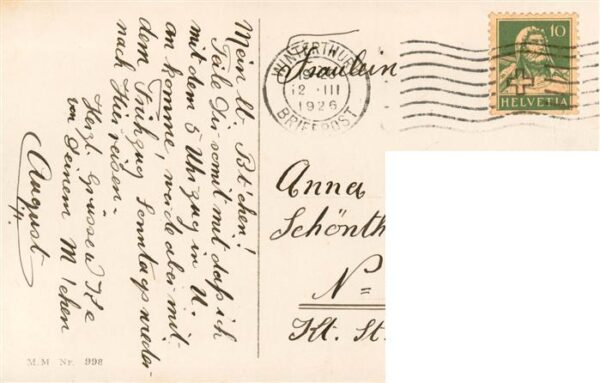 Mein lb. B'chen!
Teile Dir somit mit daß ich
mit dem 5 Uhr zug in U.
an komme, werde aber mit-
dem Frühzug Sonntags wieder
nach Hur reisen.-
Herzl. Grüsse u. Küsse
von Deinem M'chen
August
M.M Nr. 998
WINTERTHUR
12 III
1926
BRIEFPOST
10
HELVETIA
Fräulein
Anna
Schönth
N
Kt. St.